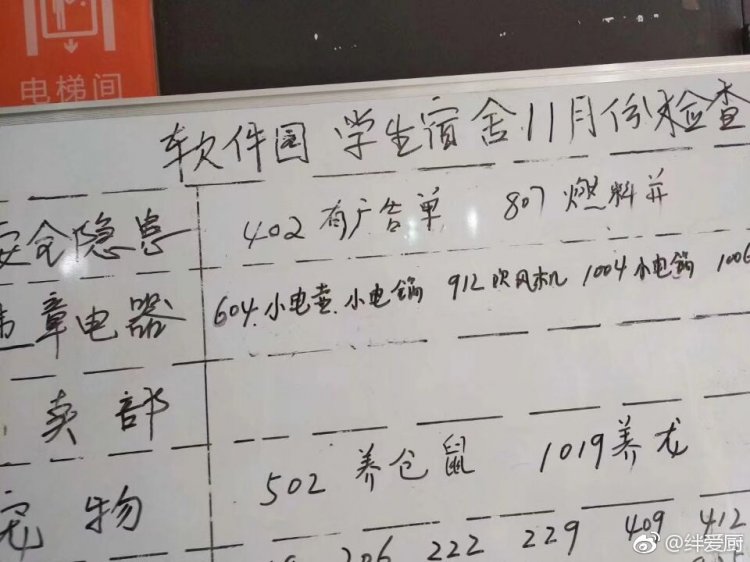 电梯间
软件园 学生宿舍11月份检查
安全隐患 402有广告单 807燃料井
违章电器 604.小电壶.小电锅 912吹风机 1004小电锅 1006
卖部
宠物 502养仓鼠 1019养龙
206 222 229 409 412
@绊爱厨